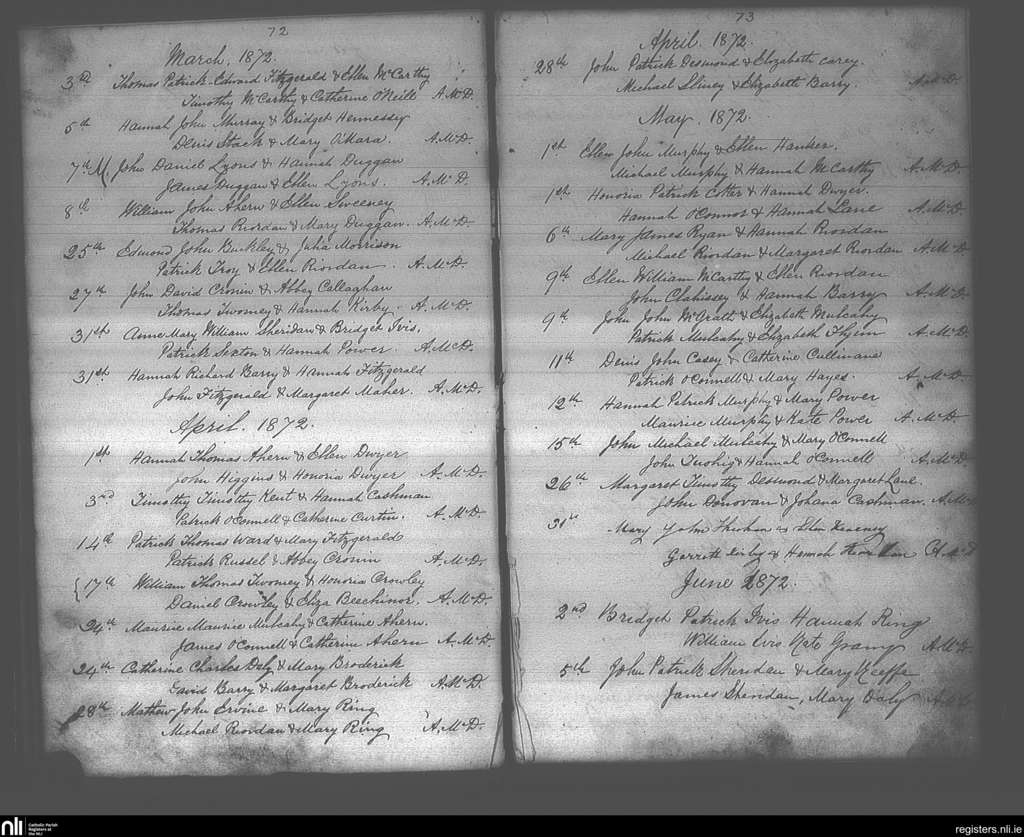 72
March. 1872.
3rd Thomas Patrick Edward Fitzgerald & Ellen McCarthy
Timothy McCarthy & Catherine O'Neill A.McD.
5th Hannah John Murray & Bridget Hennessy
Denis Stack & Mary O'Mara. A.McD.
7th John Daniel Lyons & Hannah Duggan
James Duggan & Ellen Lyons. A.McD.
8th William John Ahern & Ellen Sweeney
Thomas Riordan & Mary Duggan. A.McD.
25th Edmond John Buckley & Julia Morrison
Patrick Troy & Ellen Riordan. A.McD.
27th John David Cronin & Abbey Callaghan
Thomas Twomey & Hannah Kirby. A.McD.
31st Anne Mary William Sheridan & Bridget Ivis,
Patrick Sexton & Hannah Power. A.McD.
31st Hannah Richard Barry & Hannah Fitzgerald
John Fitzgerald & Margaret Maher. A.McD.
April. 1872.
1st Hannah Thomas Ahern & Ellen Dwyer
John Higgins & Honoria Dwyer A.McD.
3rd Timothy Timothy Kent & Hannah Cashman
Patrick O'Connell & Catherine Curtin. A.McD.
14th Patrick Thomas Ward & Mary Fitzgerald
Patrick Russel & Abbey Cronin A.McD.
17th William Thomas Twomey & Honoria Crowley
Daniel Crowley & Eliza Beechinor. A.McD.
24th Maurice Maurice Mulcahy & Catherine Ahern.
James O'Connell & Catherine Ahern A.McD.
24th Catherine Charles Daly & Mary Broderick
David Barry & Margaret Broderick A.McD.
28th Mathew John Ervine & Mary Ring
Michael Riordan & Mary Ring A.McD.
73
April. 1872.
28th John Patrick Desmond & Elizabeth Carey.
Michael Sliney & Elizabeth Barry. A.McD.
May. 1872.
1st Ellen John Murphy & Ellen Hanker.
Michael Murphy & Hannah McCarthy A.McD.
1st Honoria Patrick Cotter & Hannah Dwyer.
Hannah O'Connor & Hannah Lane A.McD.
6th Mary James Ryan & Hannah Riordan
Michael Riordan & Margaret Riordan A.McD.
9th Ellen William McCarthy & Ellen Riordan
John & Hannah Barry A.McD.
9th John John McGrath & Elizabeth Mulcahy
Patrick Mulcahy & Elizabeth A.McD.
11th Denis John Casey & Catherine Cullinane
Patrick O'Connell & Mary Hayes. A.McD.
12th Hannah Patrick Murphy & Mary Power
Maurice Murphy & Kate Power A.McD.
15th John Michael Mulcahy & Mary O'Connell
John Twohig & Hannah O'Connell A.McD.
26th Margaret Timothy Desmond & Margaret Lane.
John Donovan & Johana Cashman. A.McD.
31st Mary John & Ellen
Garrett Kirby & Hannah A.McD
June 1872.
2nd Bridget Patrick Ivis Hannah Ring
William Ivis Kate A.McD.
5th John Patrick Sheridan & Mary Keeffe
James Sheridan, Mary Daly A.McD.
nli Catholic Parish
Registers at
the NLI
registers.nli.ie